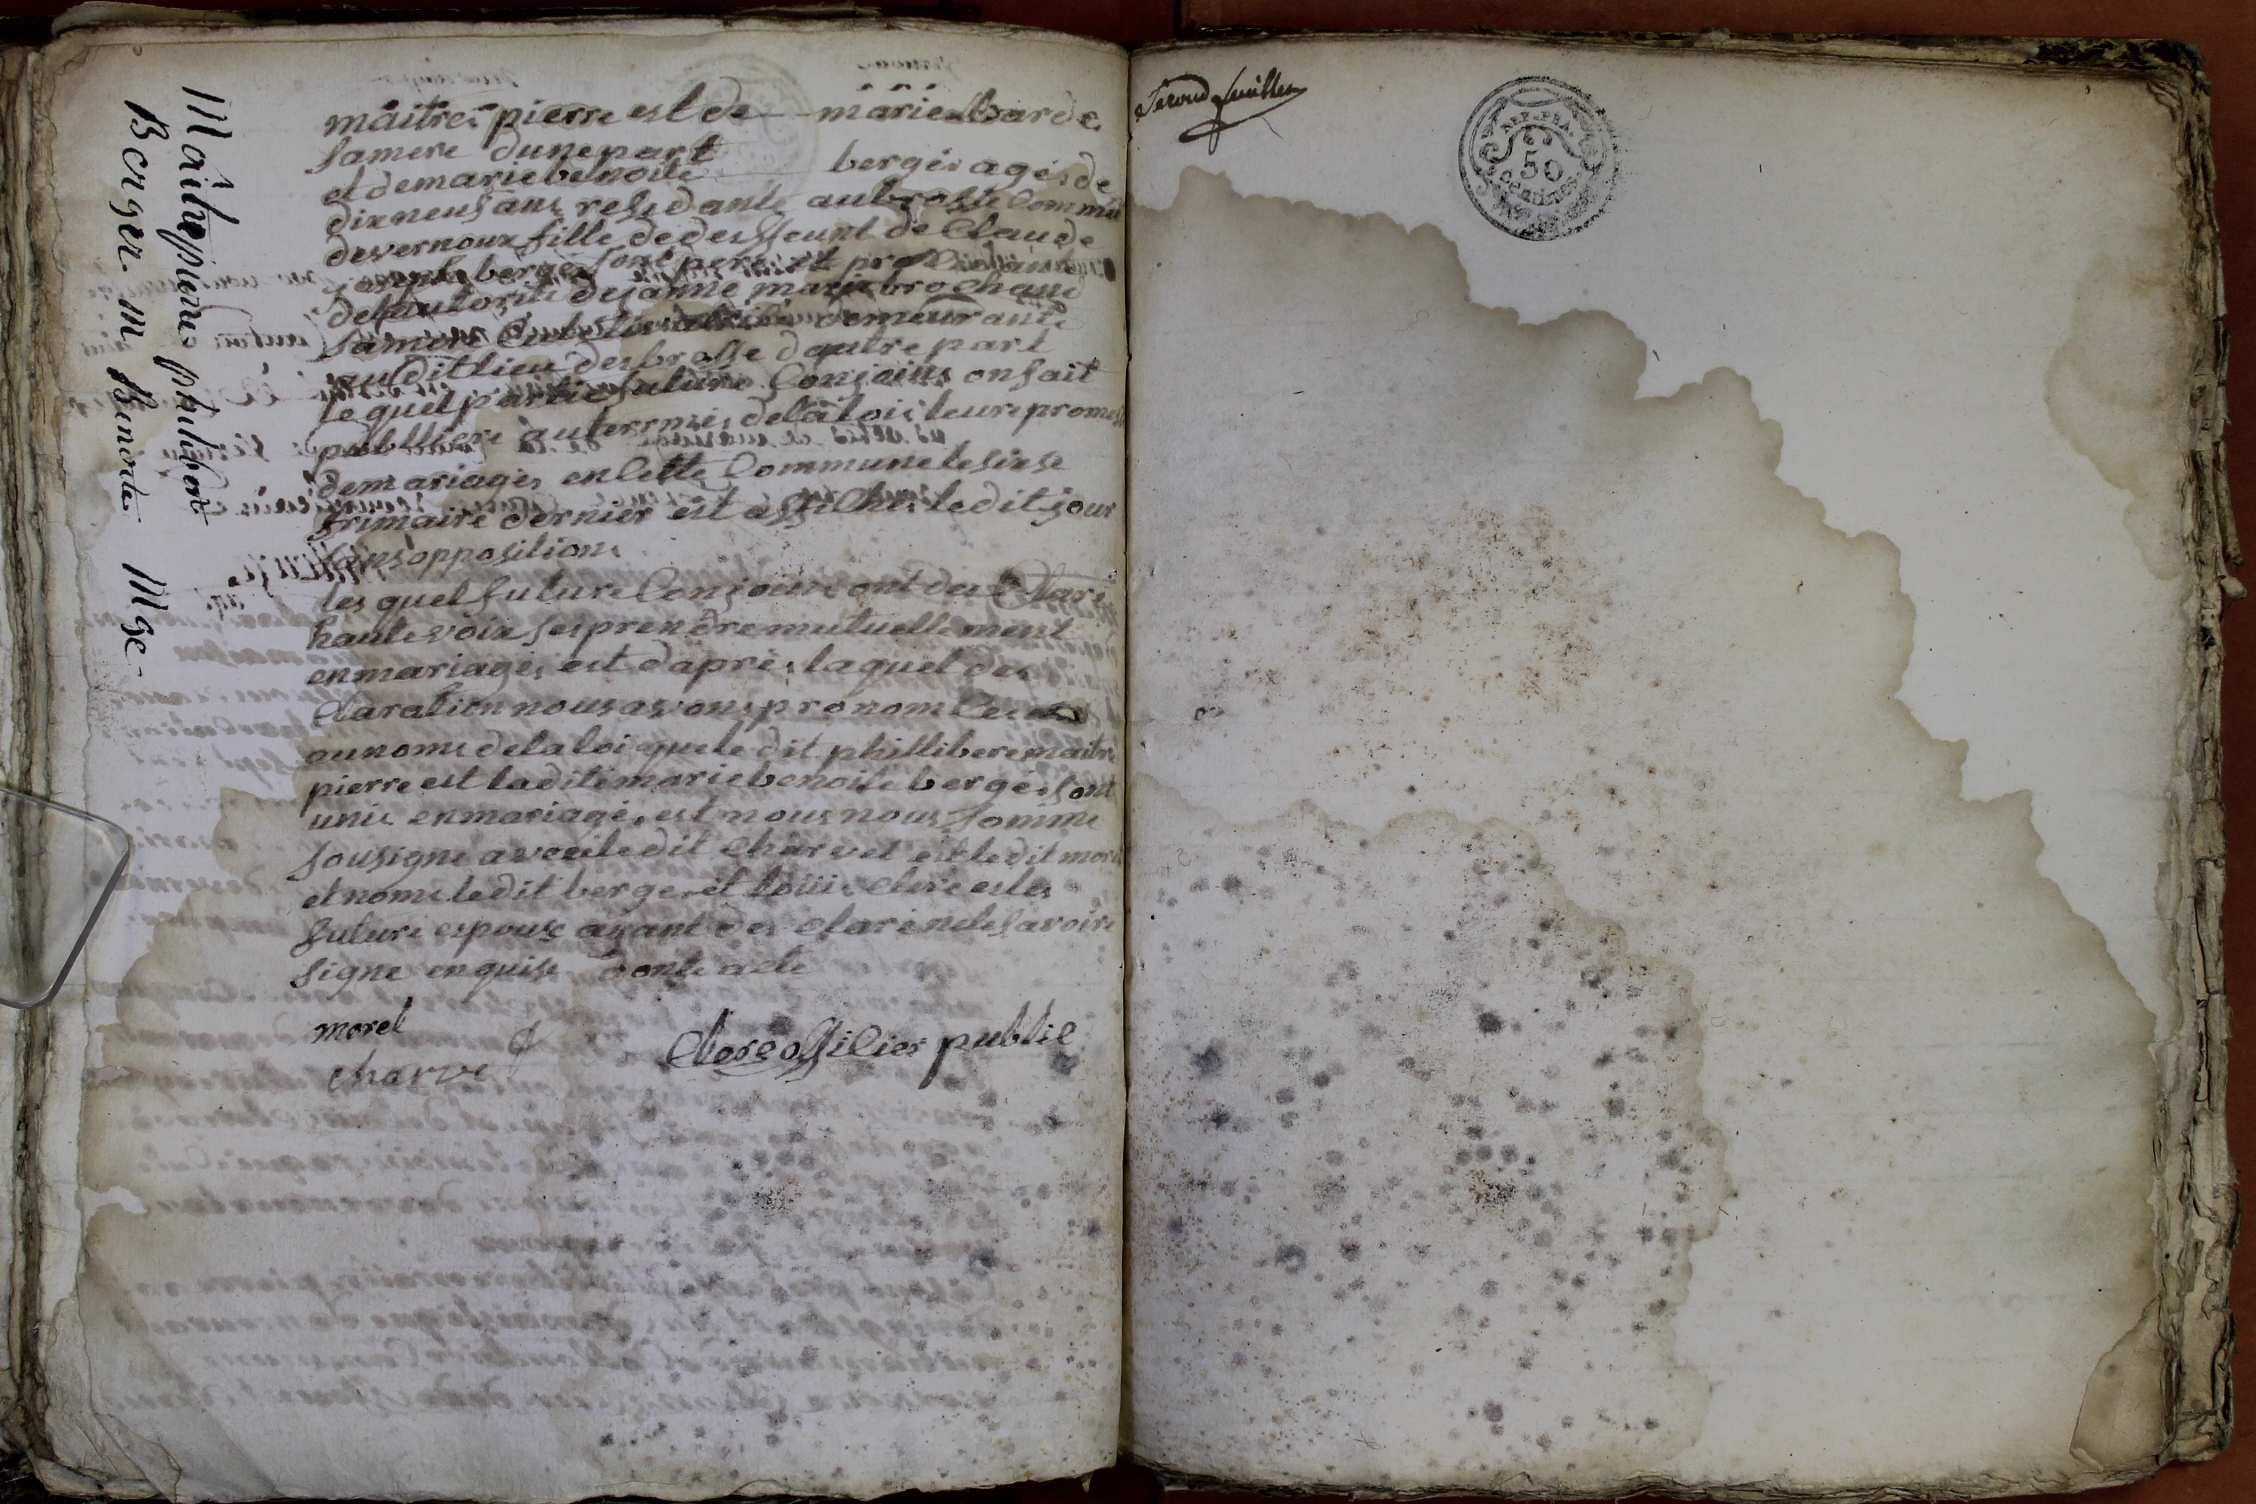 Maitrepierre philibert
Berger. M Benoite Mge
maitre pierre est de marie Barde
samere dunepart
et demariebenoite bergé agé de
dixneuf ans residante aubrosse Commune
desvernoux fille dedesseunt de Claude
joseph berge son pere et
delautorite dejanne marie brochand
samere demeurante
auditlieu desbrosse dautre part
lequel partie future Conjoins onfait
publlier auterme delaloi leure promesse
demariage enCette Commune le
frimaire dernier est affiChé ledit jour
sansopposition
lesquel future Conjoin ont des Clare
haute voix sesprendre mutuellement
enmariage est dapré laquel des
Claration nous avons pronomCe
aunome delaloi quele dit phillibere maitre
pierre est ladite mariebenoite bergé sont
unie enmariage est nous nous somme
sousigne avec ledit Charvet est ledit morel
et nome ledit berge et louis Clere est les
future espouse ayant des Clare nele savoire
signe enquise donte acte
morel
charve
Clerc offiCier publiC
Second feuillet
REP. FRA.
50
CENTIMES